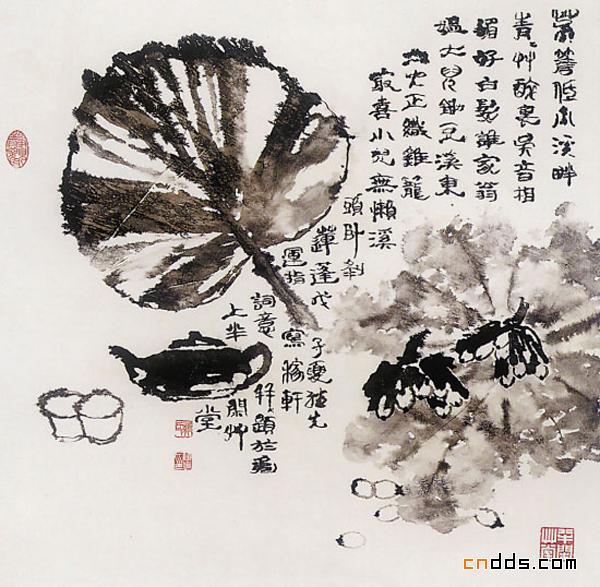 茅簷低小溪畔
青青艸醉裏吳音相
媚好白髮誰家翁
媼大兒鋤豆溪東
兒正織雞籠
最喜小兒無懶溪
頭卧剝
蓮蓬戊
子夏 先
運指寫稼軒
詞意 題於滬
上半閒艸堂
cndds.com